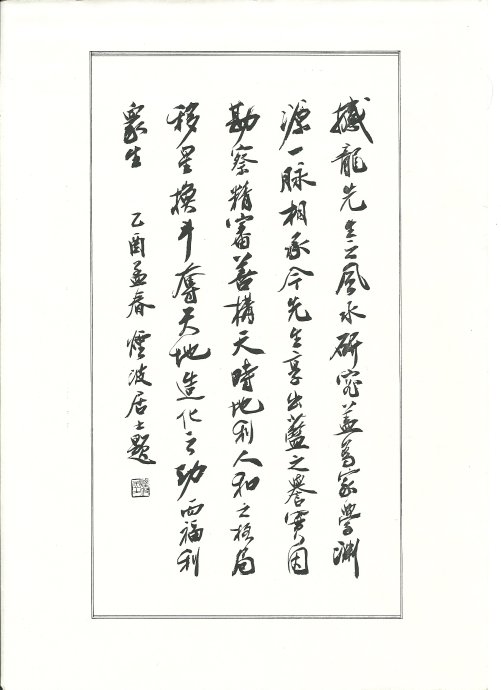 撼龍先生之風水研究蓋為家學淵
源一脉相承今先生享出藍之譽實因
勘察精審善構天時地利人和之格局
移星換斗奪天地造化之功而福利
衆生 乙酉孟春煙波居士題